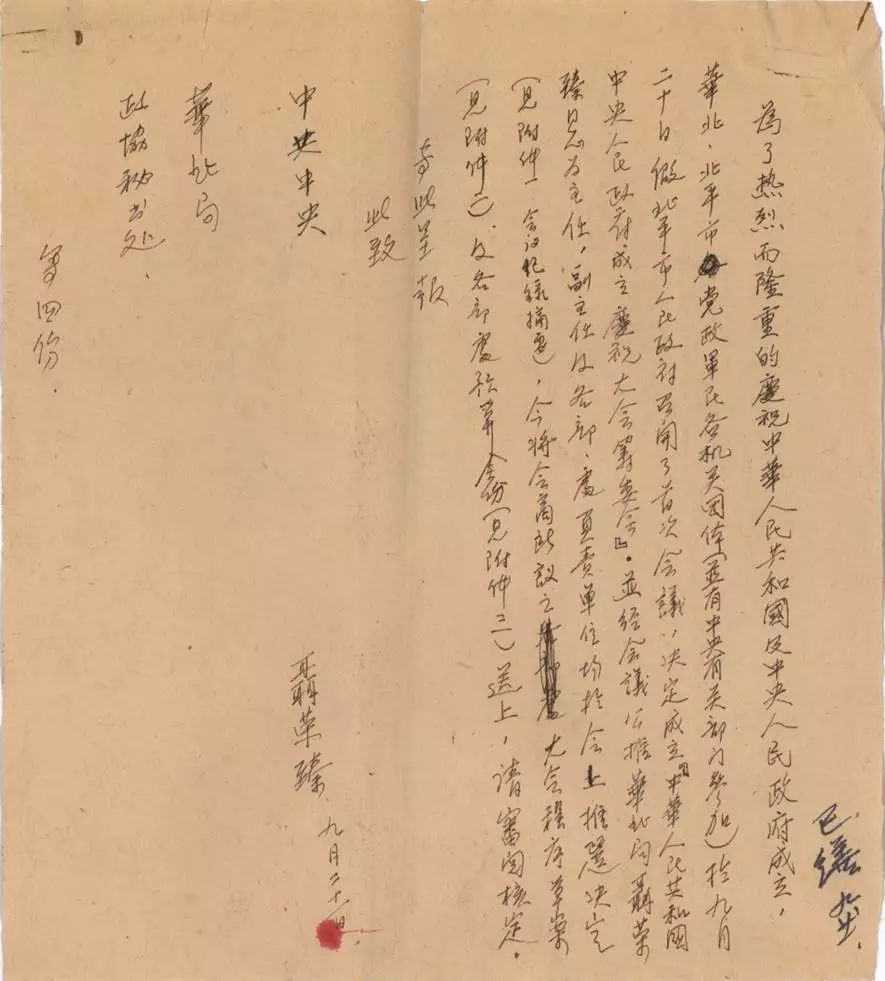 為了热烈而隆重的慶祝中華人民共和國及中央人民政府成立，
華北、北平市党政軍民各机关团体（並有中央有关部门参加）於九月
二十日假北平市人民政府召開了首次會議，决定成立『中華人民共和國
中央人民政府成立慶祝大会籌委会』。並经会議公推華北局聶荣
臻同志为主任，副主任及各部、處負責单位均於会上推選决定
（見附件一会议纪錄摘要），今将会商所設之大会程序草案
（見附件二）及各部處預算全份（見附件三）送上，請審閱核定。
専此呈报
此致
中共中央
華北局
政協秘书处、
聶荣臻 九月二十一日
写四份．
已繕